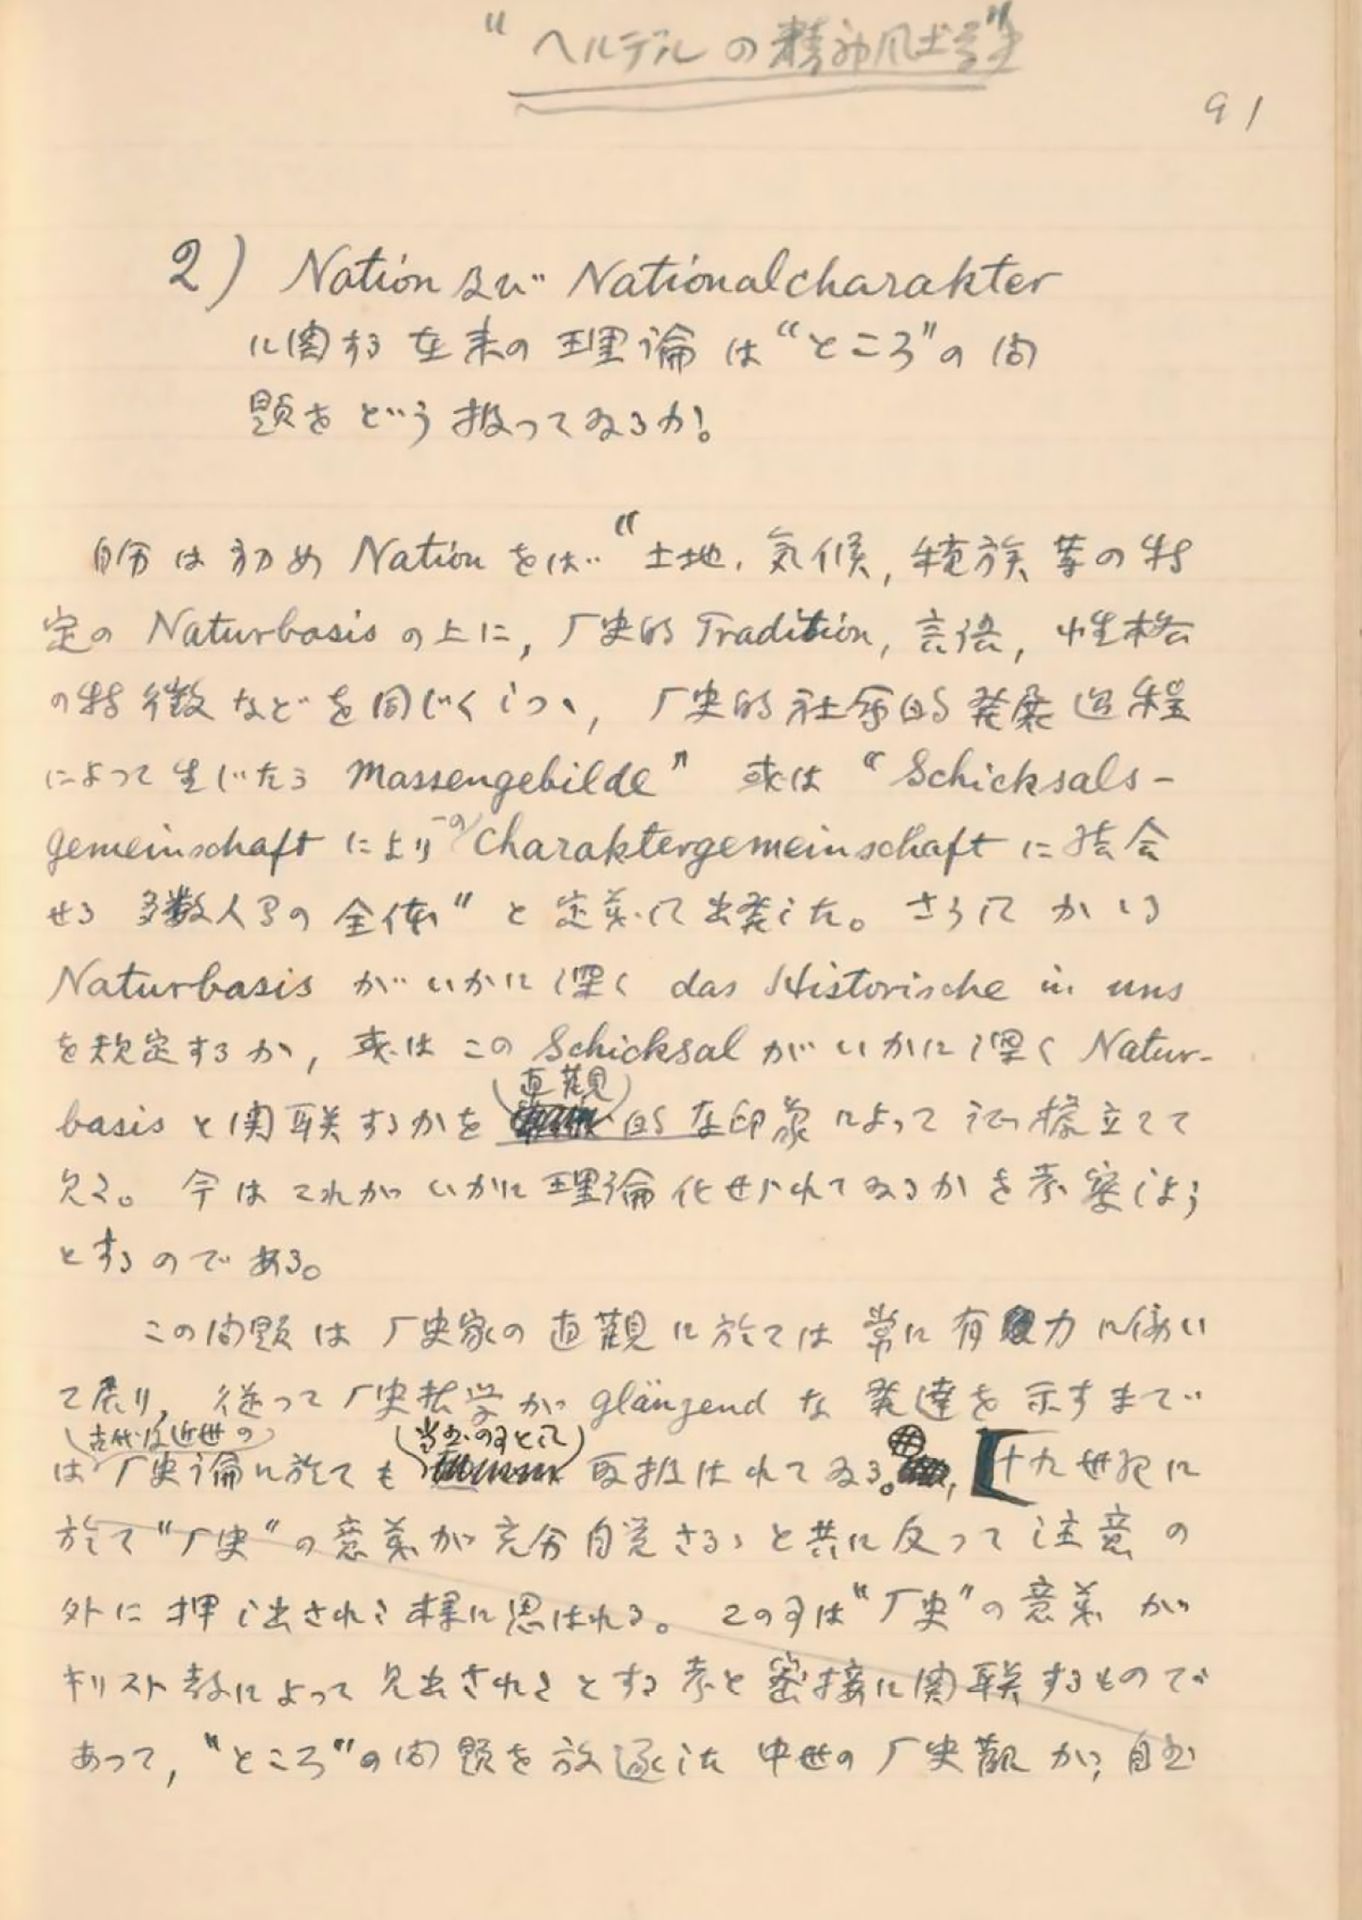 "ヘルデルの精神風土学"
91
2) Nation及び Nationalcharakter
に関する在来の理論は"ところ"の問
題をどう扱ってゐるか。
自分は初め Nation をば "土地、気候, 種族等の特
定の Naturbasis の上に, 厂史的 Tradition, 言語, 性格
の特徴などを同じくしつゝ, 厂史的社会的発展過程
によって生じたる Massengebilde" 或は "Schicksals-
gemeinschaft により一の Charaktergemeinschaft に結合
せる多数人間の全体" と定義して出発した。さうして かゝる
Naturbasis がいかに深く das Historische in uns
を規定するか, 或は この Schicksal がいかに深く Natur-
basis と関联するかを (直観)的な印象によって 証據立てて
見た。今はこれがいかに理論化せられてゐるかを考察しよう
とするのである。
この問題は厂史家の直観に於ては常に有力に働い
て居り, 従って厂史哲学が glänzend な発達を示すまで
(古代及近世の)
は厂史論に於ても (当然の事として) 取扱はれてゐる。, [十九世紀に
於て"厂史"の意義が充分自覚さるゝと共に反って注意の
外に押し出された様に思はれる。この事は"厂史"の意義が
キリスト教によって見出されたとする考と密接に関联するもので
あって, "ところ"の問題を放逐した中世の厂史観が, 自然